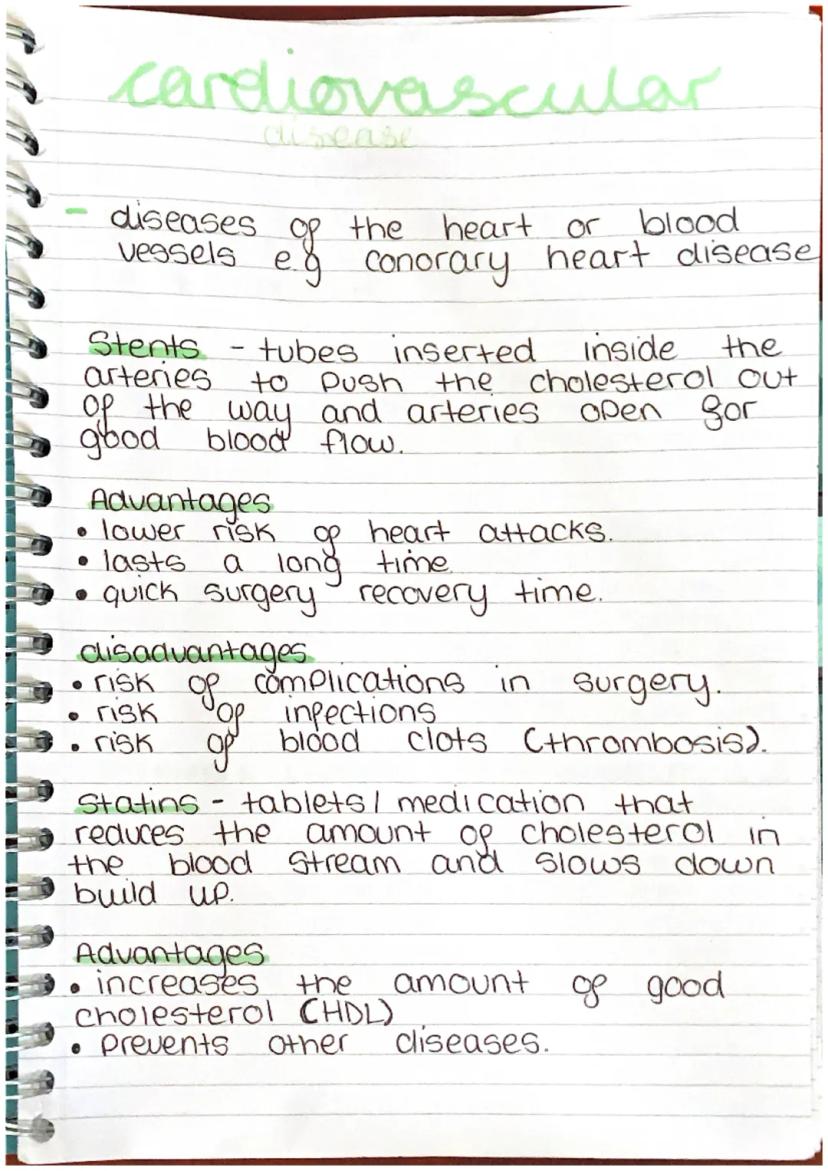 cardiovascular
disease
- diseases of the heart or blood
vessels e.g conorary heart disease
Stents - tubes inserted inside the
arteries to push the cholesterol out
of the way and arteries open for
good blood flow.
Advantages
• lower risk of heart attacks.
• lasts a long time
• quick surgery recovery time.
disadvantages
• risk of complications in surgery.
• risk of infections
• risk of blood clots (thrombosis).
Statins - tablets/medication that
reduces the amount of cholesterol in
the blood stream and slows down
build up.
Advantages
• increases the amount of good
cholesterol (HDL)
• prevents other diseases.